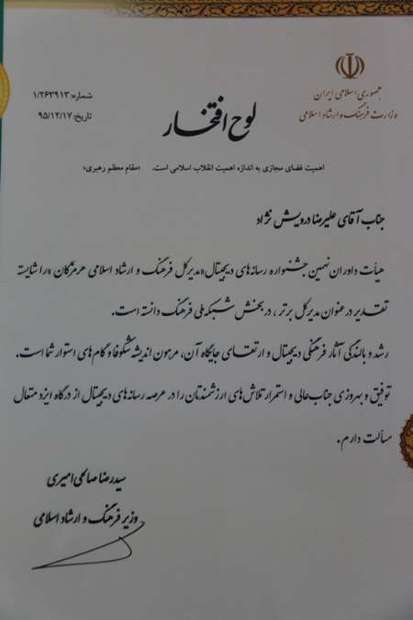 جمهوری اسلامی ایران
وزارت فرهنگ و ارشاد اسلامی
شماره: ۱/۲۶۳۹۱۳
تاریخ: ۹۵/۱۲/۱۷
لوح افتخار
اهمیت فضای مجازی به اندازه اهمیت انقلاب اسلامی است. «مقام معظم رهبری»
جناب آقای علیرضا درویش نژاد
هیأت داوران نهمین جشنواره رسانه‌های دیجیتال «مدیرکل فرهنگ و ارشاد اسلامی هرمزگان» را شایسته
تقدیر در عنوان مدیرکل برتر، در بخش شبکه ملی فرهنگ دانسته است.
رشد و بالندگی آثار فرهنگی دیجیتال و ارتقای جایگاه آن، مرهون اندیشه شکوفا و گام‌های استوار شما است.
توفیق و بهروزی جنابعالی و استمرار تلاش‌های ارزشمندتان را در عرصه رسانه‌های دیجیتال از درگاه ایزد متعال
مسألت دارم.
سیدرضا صالحی امیری
وزیر فرهنگ و ارشاد اسلامی